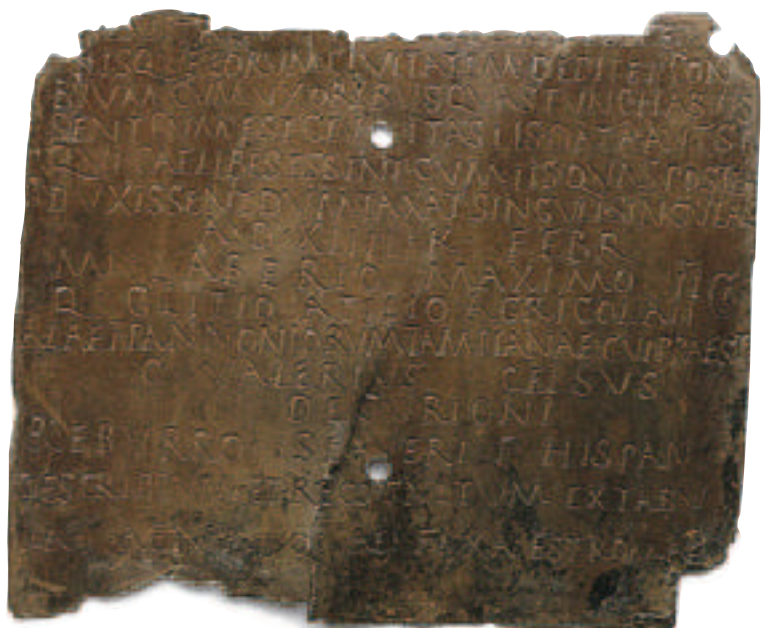 RISQ EORVM CIVITATEM DEDIT ET CON
BIVM CVM VXORIBVS QVAS TVNC HABVIS
SENT CVM EST CIVITAS IIS DATA AVT SI
QVI CAELIBES ESSENT CVM IIS QVAS POSTE
DVXISSENT DVMTAXAT SINGVLI SINGVLAS
A D XIIII K FEBR
M LABERIO MAXIMO II
Q GLITIO ATILIO AGRICOLA II
ALAE I PANNONIORVM TAMPIANAE CVI PRAEST
C VALERIVS CELSVS
DECVRIONI
REBVRRO SEVERI F HISPAN
DESCRIPTVM ET RECOGNITVM EX TABVL
AENEA FIXA EST ROMAE